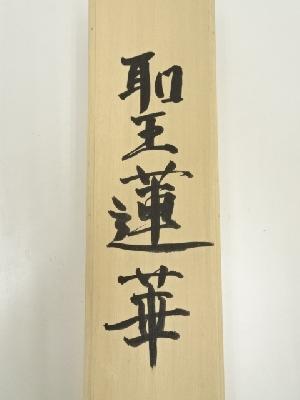 聖蓮華